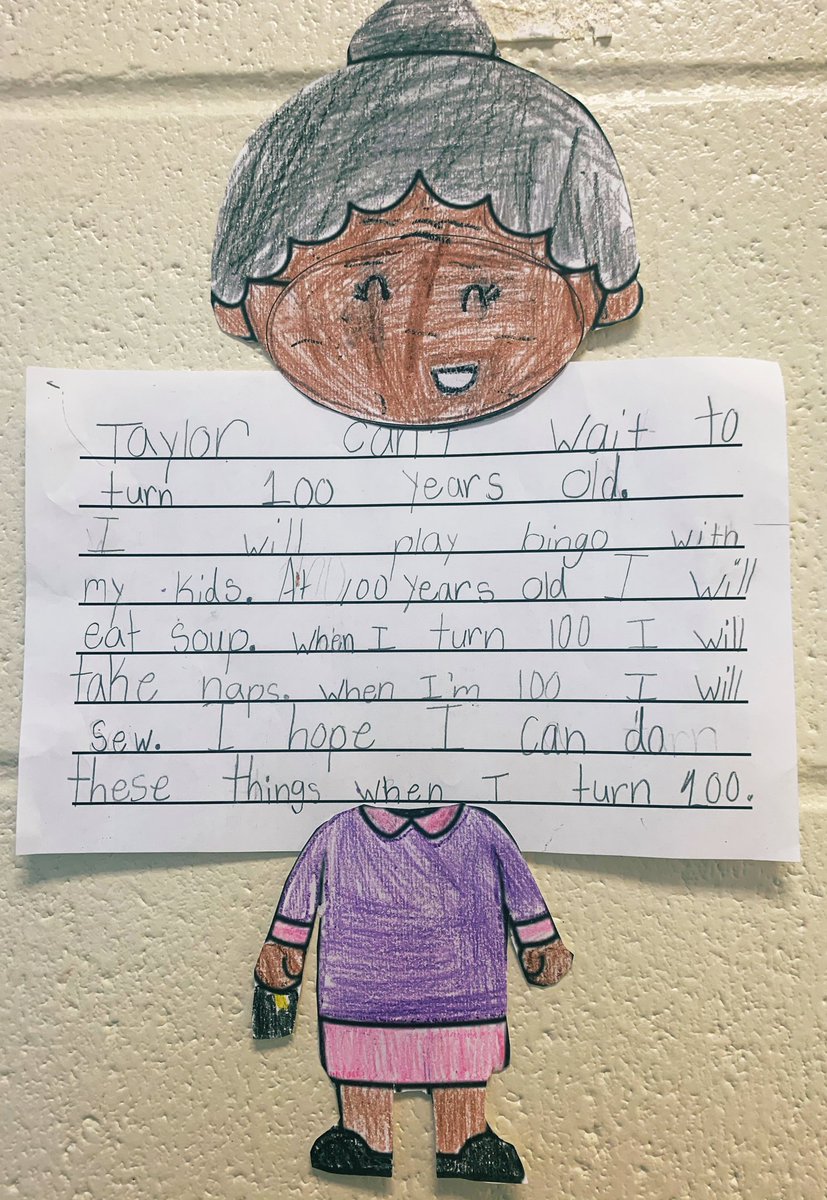 Taylor can't wait to
turn 100 years old.
I will play bingo with
my kids. At 100 years old I will
eat soup. when I turn 100 I will
take naps. when I'm 100 I will
sew. I hope I can do
these things when I turn 100.